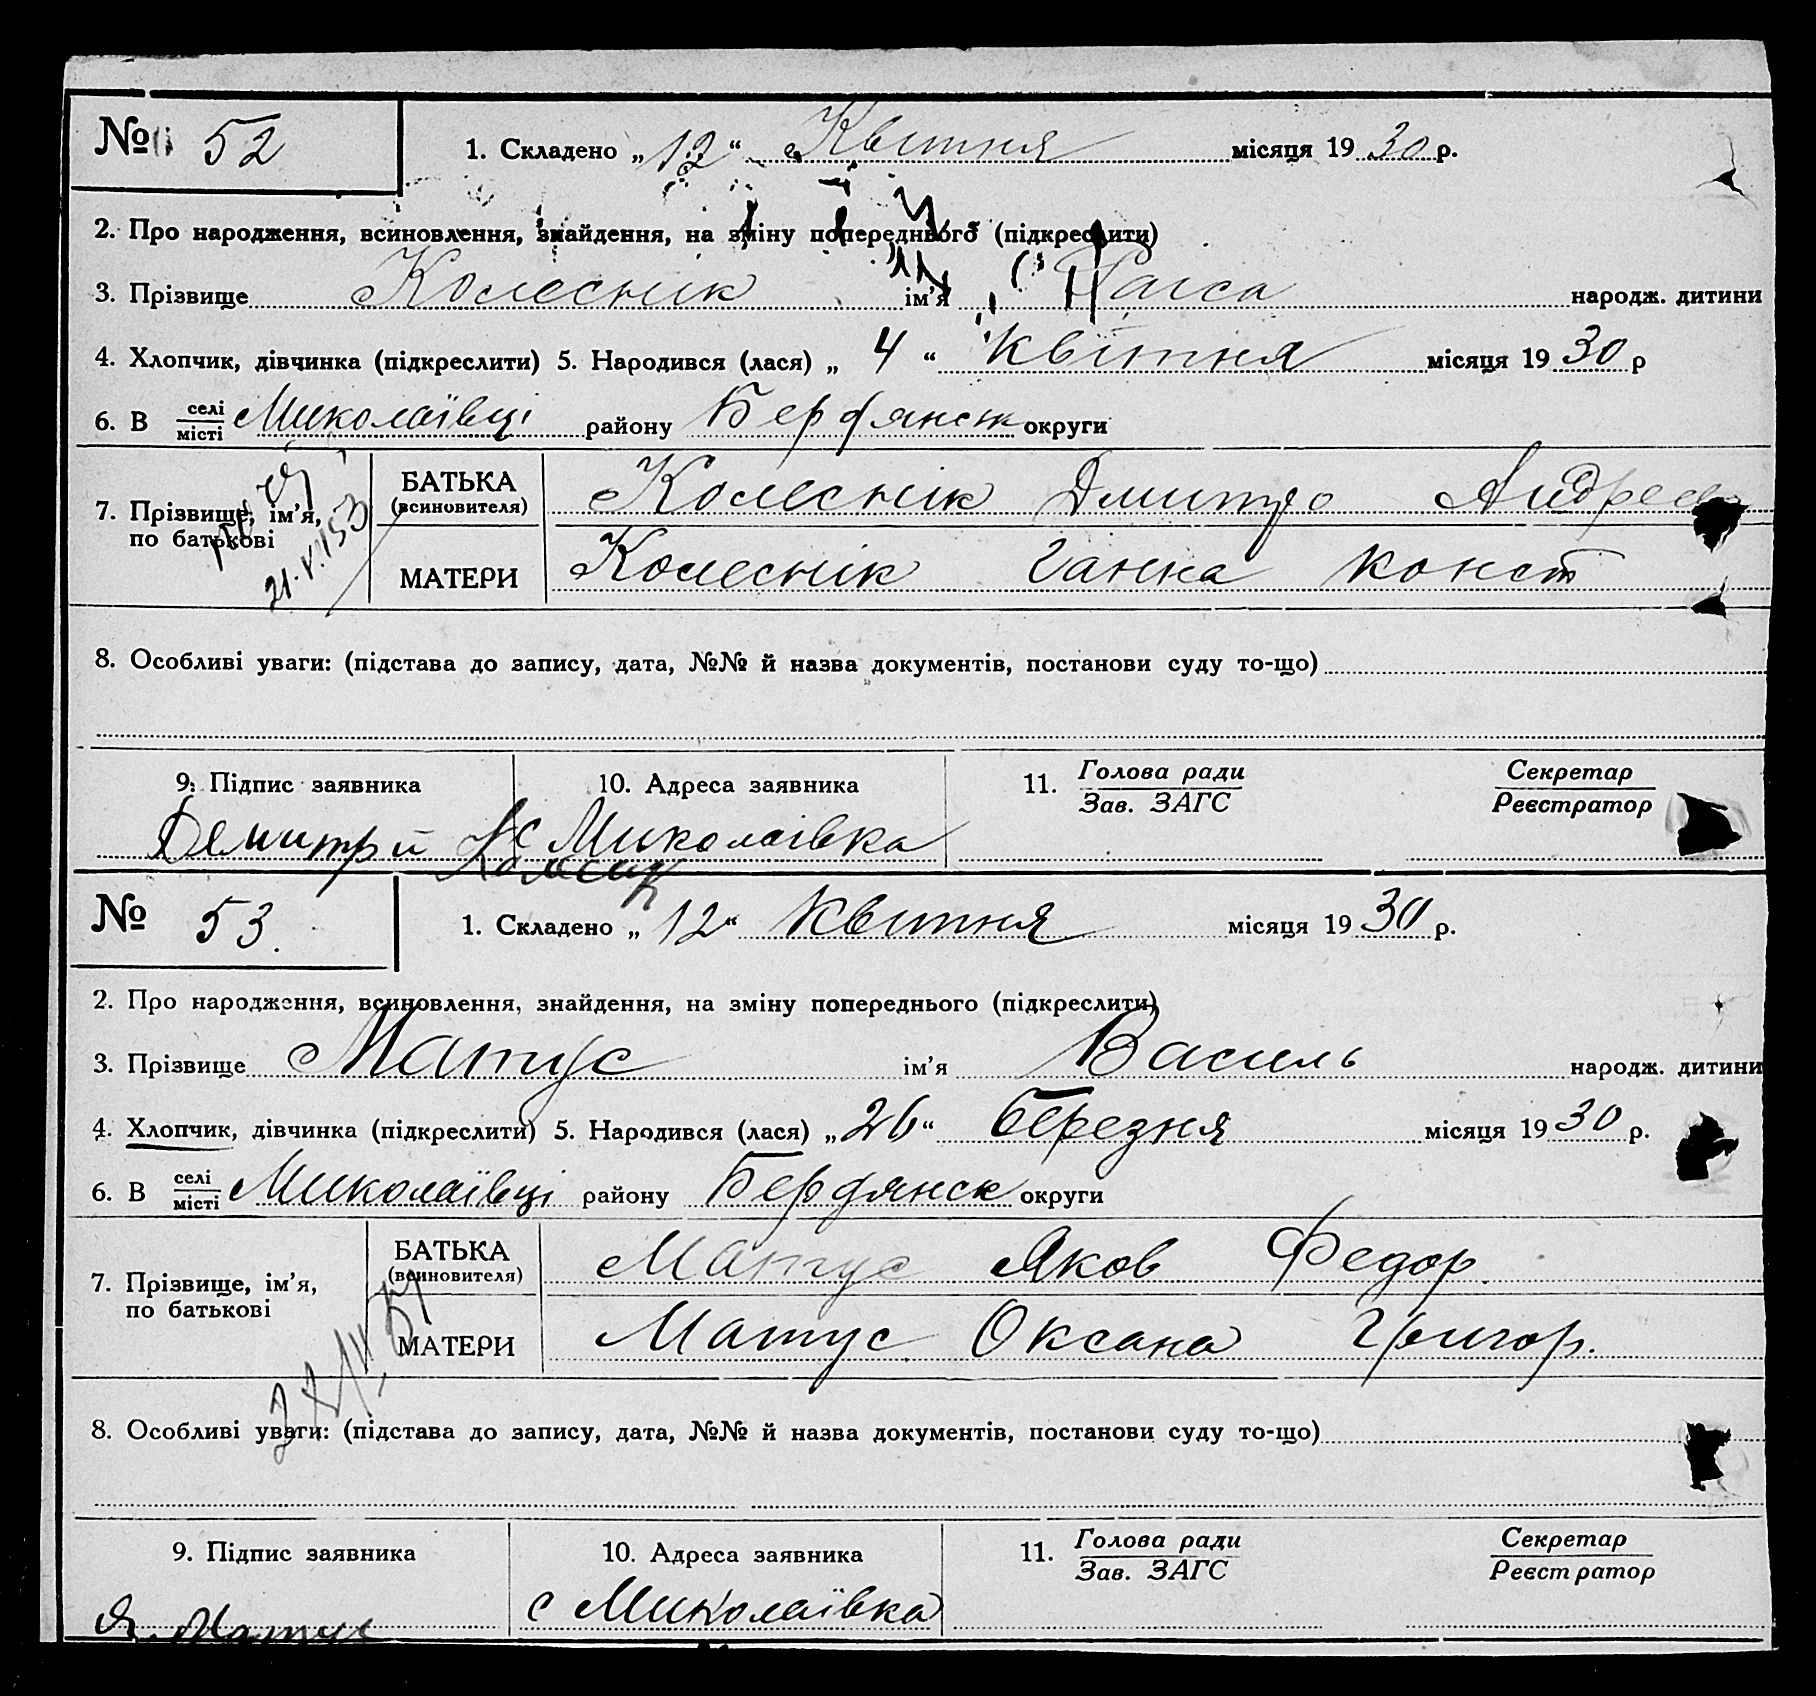 № 52
1. Складено „12“ Квітня місяця 1930 р.
2. Про народження, всиновлення, знайдення, на зміну попереднього (підкреслити)
3. Прізвище Колеснік ім'я Раіса народж. дитини
4. Хлопчик, дівчинка (підкреслити) 5. Народився (лася) „ 4 “ Квітня місяця 1930 р
6. В селі місті Миколаївці району Бердянск округи
7. Прізвище, ім'я, по батькові
21.V.53
БАТЬКА (всиновителя) Колеснік Дмитро Андреев
МАТЕРИ Колеснік Ганна Конст
8. Особливі уваги: (підстава до запису, дата, №№ й назва документів, постанови суду то-що)
9. Підпис заявника 10. Адреса заявника 11. Голова ради Зав. ЗАГС Секретар Реєстратор
с Миколаівка
№ 53.
1. Складено „12“ Квітня місяця 1930 р.
2. Про народження, всиновлення, знайдення, на зміну попереднього (підкреслити)
3. Прізвище Матус ім'я Василь народж. дитини
4. Хлопчик, дівчинка (підкреслити) 5. Народився (лася) „26“ березня місяця 1930 р.
6. В селі місті Миколаївці району Бердянск округи
7. Прізвище, ім'я, по батькові
БАТЬКА (всиновителя) Матус Яков Федор.
МАТЕРИ Матус Оксана Григор.
8. Особливі уваги: (підстава до запису, дата, №№ й назва документів, постанови суду то-що)
9. Підпис заявника 10. Адреса заявника 11. Голова ради Зав. ЗАГС Секретар Реєстратор
Я. Матус с Миколаївка